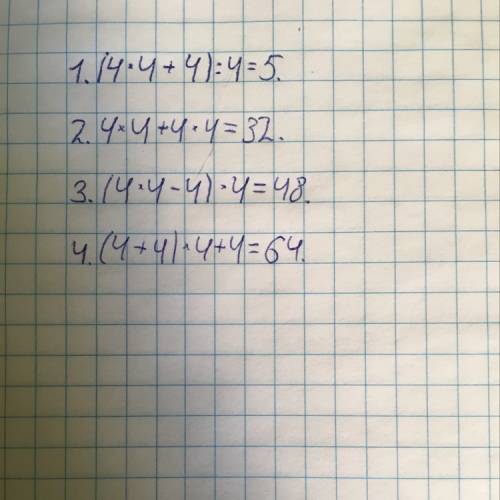 1. (4·4+4):4=5.
2. 4·4+4·4=32.
3. (4·4-4)·4=48.
4. (4+4)·4+4=64.